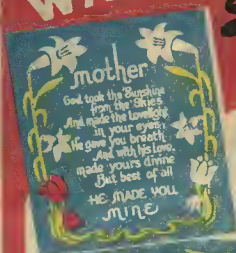 WA
mother
God took the Sunshine
from the Skies
And made the Lovelight
in your eyes,
He gave you breath
And with his Love,
made yours divine
But best of all
HE MADE YOU
MINE